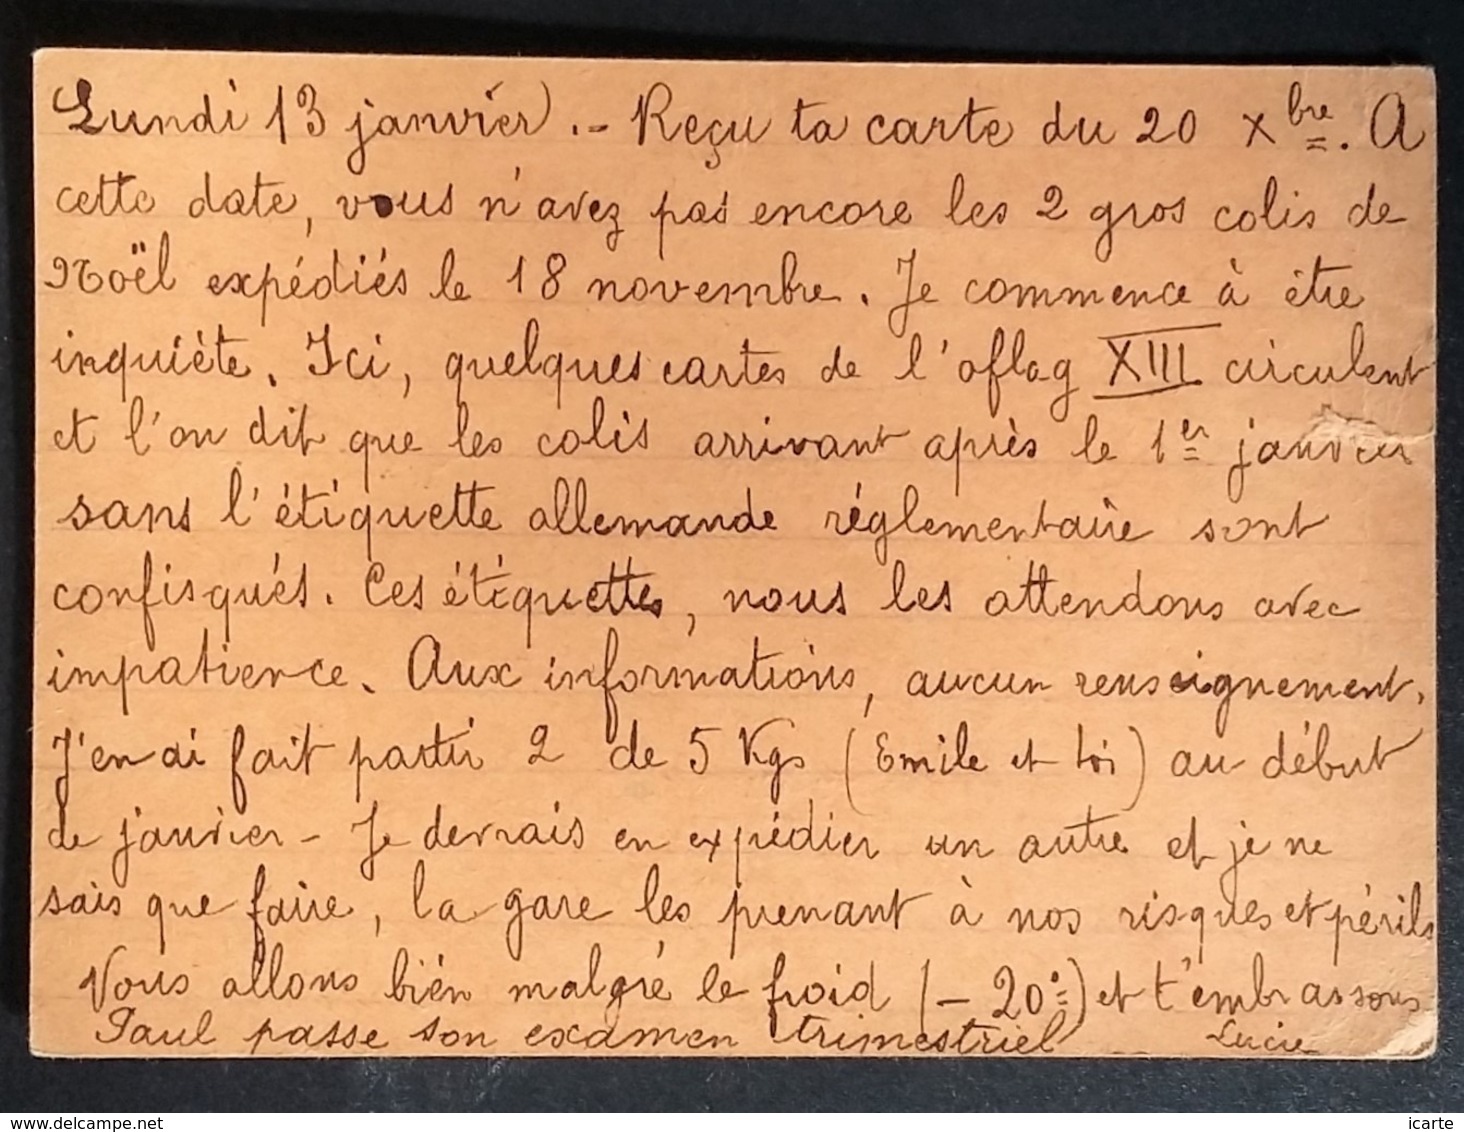 Lundi 13 janvier. - Reçu ta carte du 20 Xbre. A
cette date, vous n'avez pas encore les 2 gros colis de
Noël expédiés le 18 novembre. Je commence à être
inquiète. Ici, quelques cartes de l'oflag XIII circulent
et l'on dit que les colis arrivant après le 1er janvier
sans l'étiquette allemande réglementaire sont
confisqués. Ces étiquettes, nous les attendons avec
impatience. Aux informations, aucun renseignement.
J'en ai fait partir 2 de 5 Kgs (Emile et toi) au début
de janvier - Je devrais en expédier un autre et je ne
sais que faire, la gare les prenant à nos risques et périls
Nous allons bien malgré le froid (- 20°) et t'embrassons
Paul passe son examen trimestriel Lucie
www.delcampe.net
icarte